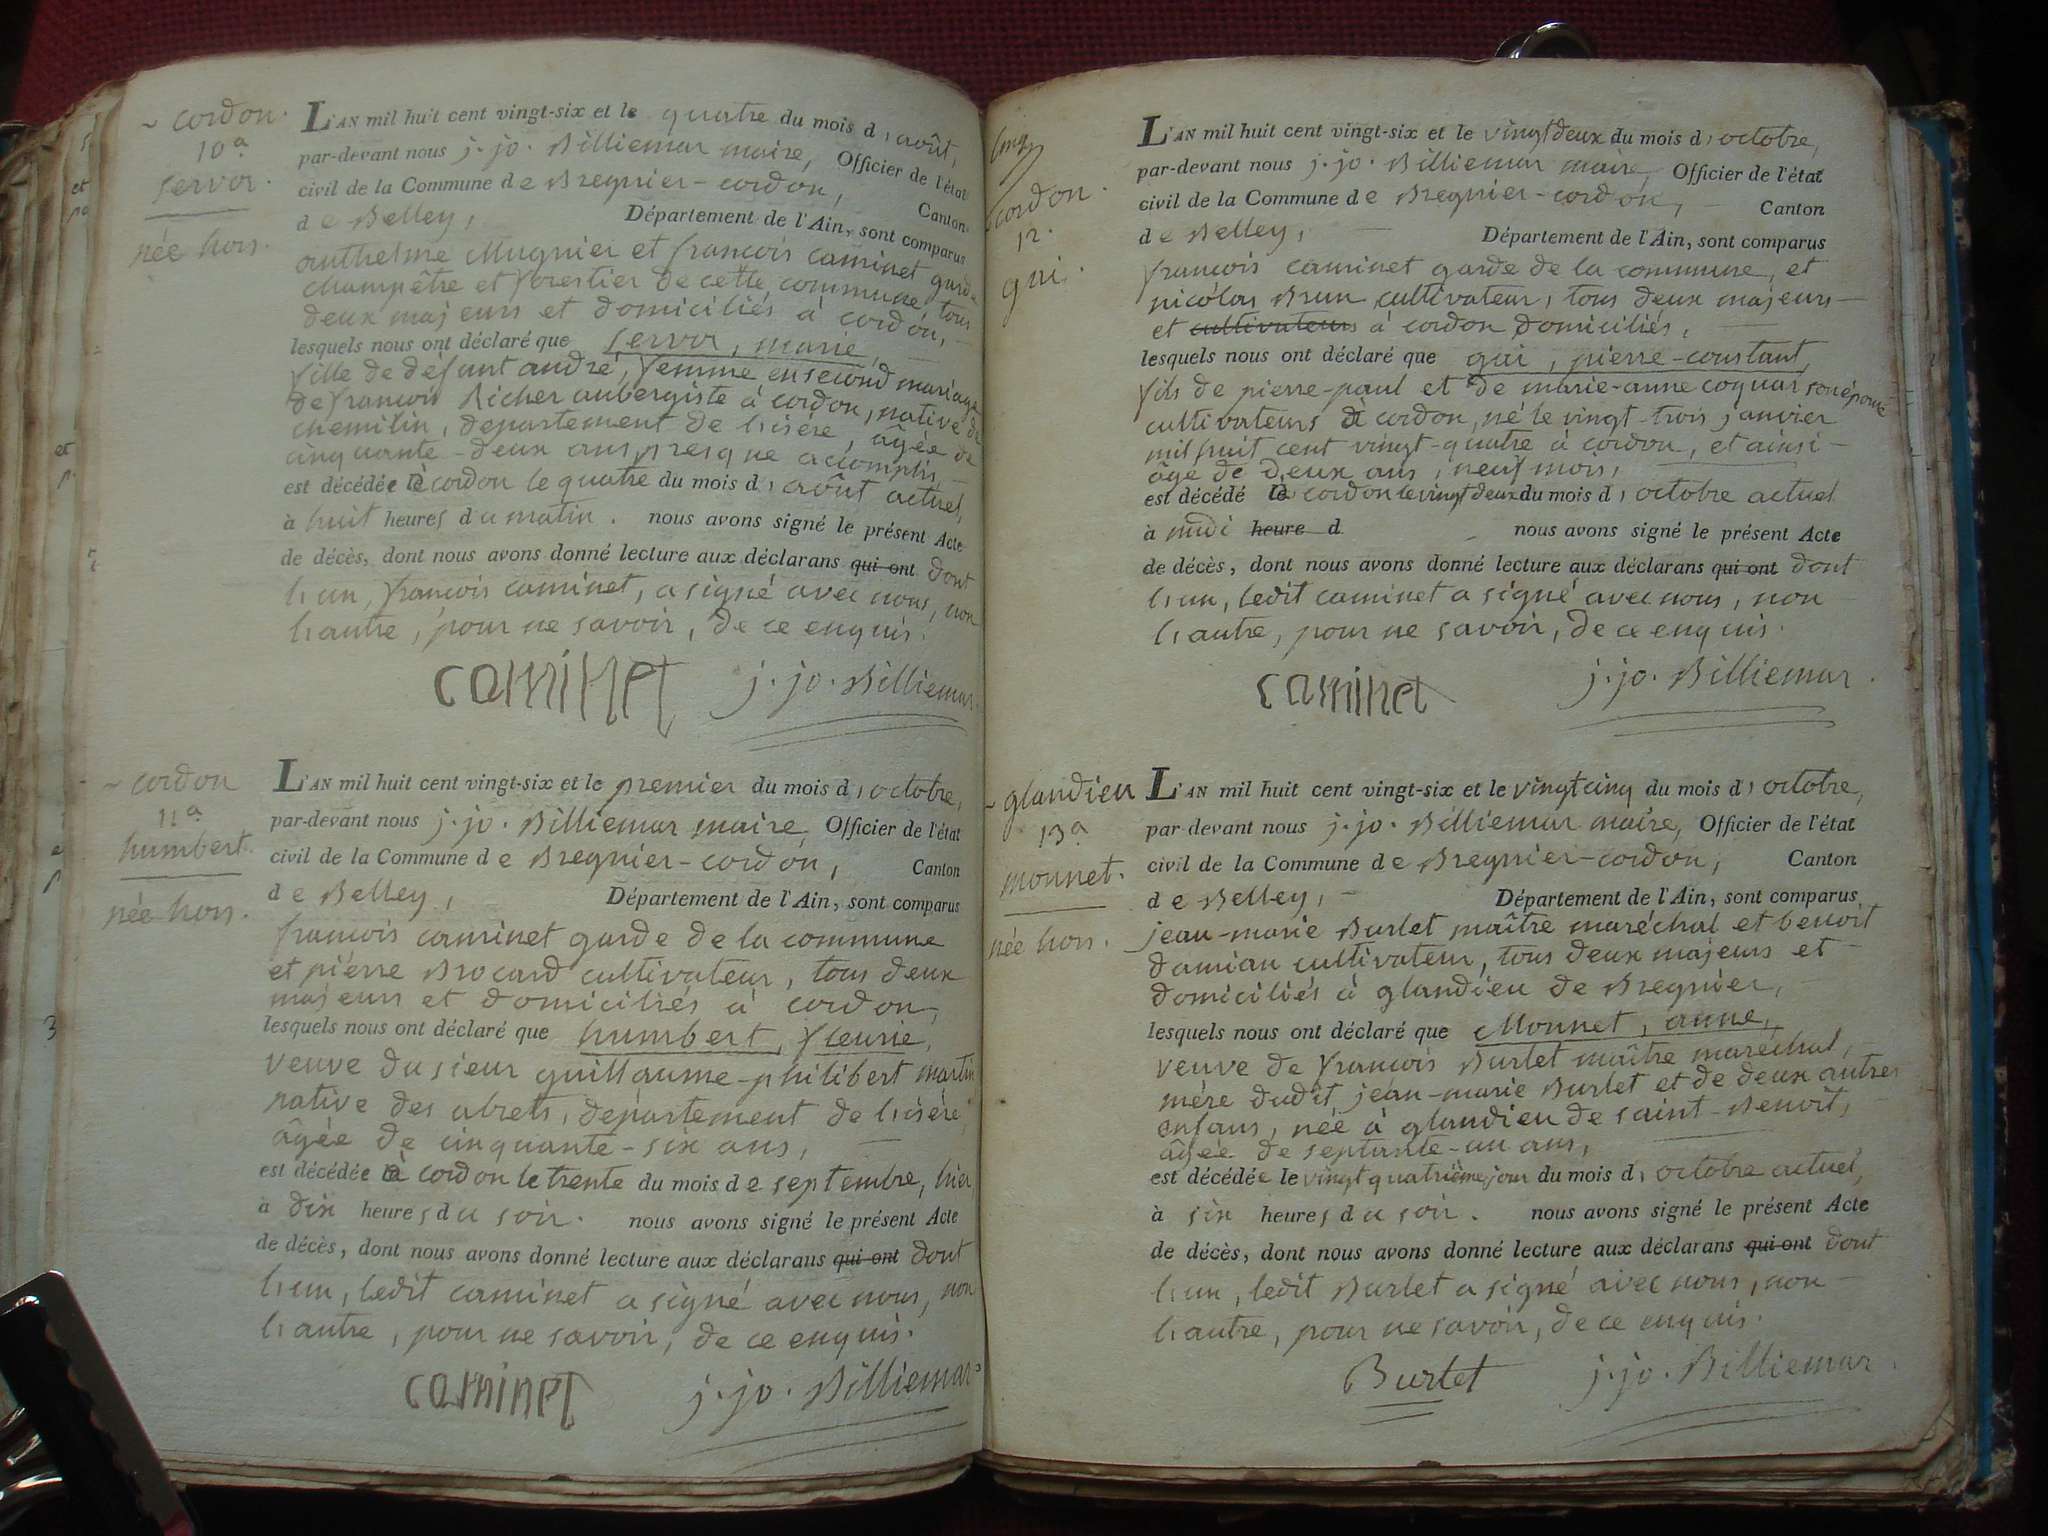 ~ cordon.
10e
servoz.
née hors.
L'AN mil huit cent vingt-six et le quatre du mois d'août,
par-devant nous j. jo. Billiemaz maire, Officier de l'état
civil de la Commune de Bregnier-cordon, Canton
de Belley, Département de l'Ain, sont comparus
anthelme Mugnier et françois caminet garde
champêtre et forestier de cette commune, tous
deux majeurs et domiciliés à cordon,
lesquels nous ont déclaré que servoz, marie,
fille de défunt andré, femme en second mariage
de françois Richer aubergiste à cordon, native de
chemilin, département de l'isère, âgée de
cinquante-deux ans presque accomplis,
est décédée à cordon le quatre du mois d'août actuel,
à huit heures du matin. nous avons signé le présent Acte
de décès, dont nous avons donné lecture aux déclarans qui ont dont
l'un, françois caminet, a signé avec nous, non
l'autre, pour ne savoir, de ce enquis.
caminet j. jo. Billiemaz
~ cordon
11e
humbert.
née hors.
L'AN mil huit cent vingt-six et le premier du mois d'octobre,
par-devant nous j. jo. Billiemaz maire, Officier de l'état
civil de la Commune de Bregnier-cordon, Canton
de Belley, Département de l'Ain, sont comparus
françois caminet garde de la commune
et pierre Brocard cultivateur, tous deux
majeurs et domiciliés à cordon,
lesquels nous ont déclaré que humbert, fleurie,
veuve du sieur guillaume-philibert martin
native des abrets, département de l'isère,
âgée de cinquante-six ans,
est décédée à cordon le trente du mois de septembre, hier,
à dix heures du soir. nous avons signé le présent Acte
de décès, dont nous avons donné lecture aux déclarans qui ont dont
l'un, ledit caminet a signé avec nous, non
l'autre, pour ne savoir, de ce enquis.
caminet j. jo. Billiemaz
cordon.
12.
gui.
L'AN mil huit cent vingt-six et le vingt deux du mois d'octobre,
par-devant nous j. jo. Billiemaz maire, Officier de l'état
civil de la Commune de Bregnier-cordon, Canton
de Belley, Département de l'Ain, sont comparus
françois caminet garde de la commune, et
nicolas Brun cultivateur, tous deux majeurs
et cultivateurs à cordon domiciliés,
lesquels nous ont déclaré que gui, pierre-constant,
fils de pierre-paul et de marie-anne coquaz son épouse
cultivateurs à cordon, né le vingt-trois janvier
mil huit cent vingt-quatre à cordon, et ainsi
âgé de deux ans, neuf mois,
est décédé à cordon le vingt deux du mois d'octobre actuel
à midi heure d nous avons signé le présent Acte
de décès, dont nous avons donné lecture aux déclarans qui ont dont
l'un, ledit caminet a signé avec nous, non
l'autre, pour ne savoir, de ce enquis.
caminet j. jo. Billiemaz.
~ glandieu
13e
monnet.
née hors.
L'AN mil huit cent vingt-six et le vingt cinq du mois d'octobre,
par-devant nous j. jo. Billiemaz maire, Officier de l'état
civil de la Commune de Bregnier-cordon, Canton
de Belley, Département de l'Ain, sont comparus
jean-marie Burlet maître maréchal et benoit
damian cultivateur, tous deux majeurs et
domiciliés à glandieu de Bregnier,
lesquels nous ont déclaré que Monnet, anne,
veuve de françois Burlet maître maréchal,
mère dudit jean-marie Burlet et de deux autres
enfans, née à glandieu de saint-Benoit,
âgée de septante-un ans,
est décédée le vingt quatrième jour du mois d'octobre actuel,
à six heures du soir. nous avons signé le présent Acte
de décès, dont nous avons donné lecture aux déclarans qui ont dont
l'un, ledit Burlet a signé avec nous, non
l'autre, pour ne savoir, de ce enquis.
Burlet j. jo. Billiemaz.